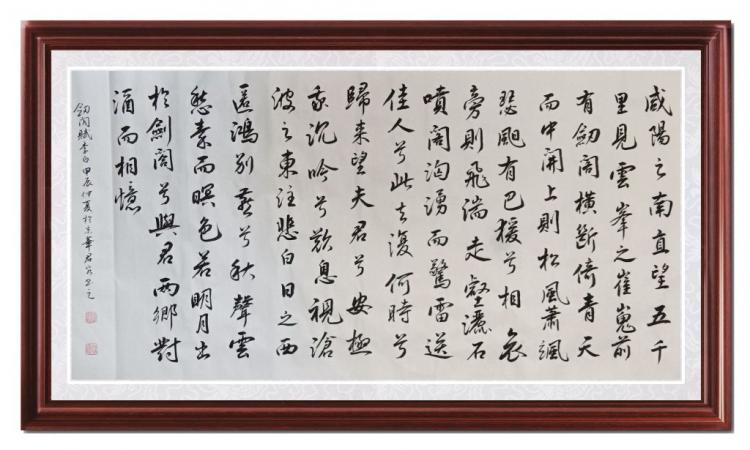 咸陽之南直望五千
里見雲峯之崔嵬前
有劒阁橫斷倚青天
而中開上則松風蕭颯
瑟颸有巴猨兮相哀
旁則飛湍走壑灑石
噴阁洶湧而驚雷送
佳人兮此去復何時兮
歸来望夫君兮安極
我沉吟兮歎息視滄
波之東注悲白日之西
匿鴻别燕兮秋聲雲
愁秦而暝色若明月出
於劍阁兮與君两鄉對
酒而相憶
劒阁賦李白甲辰仲夏於京華君